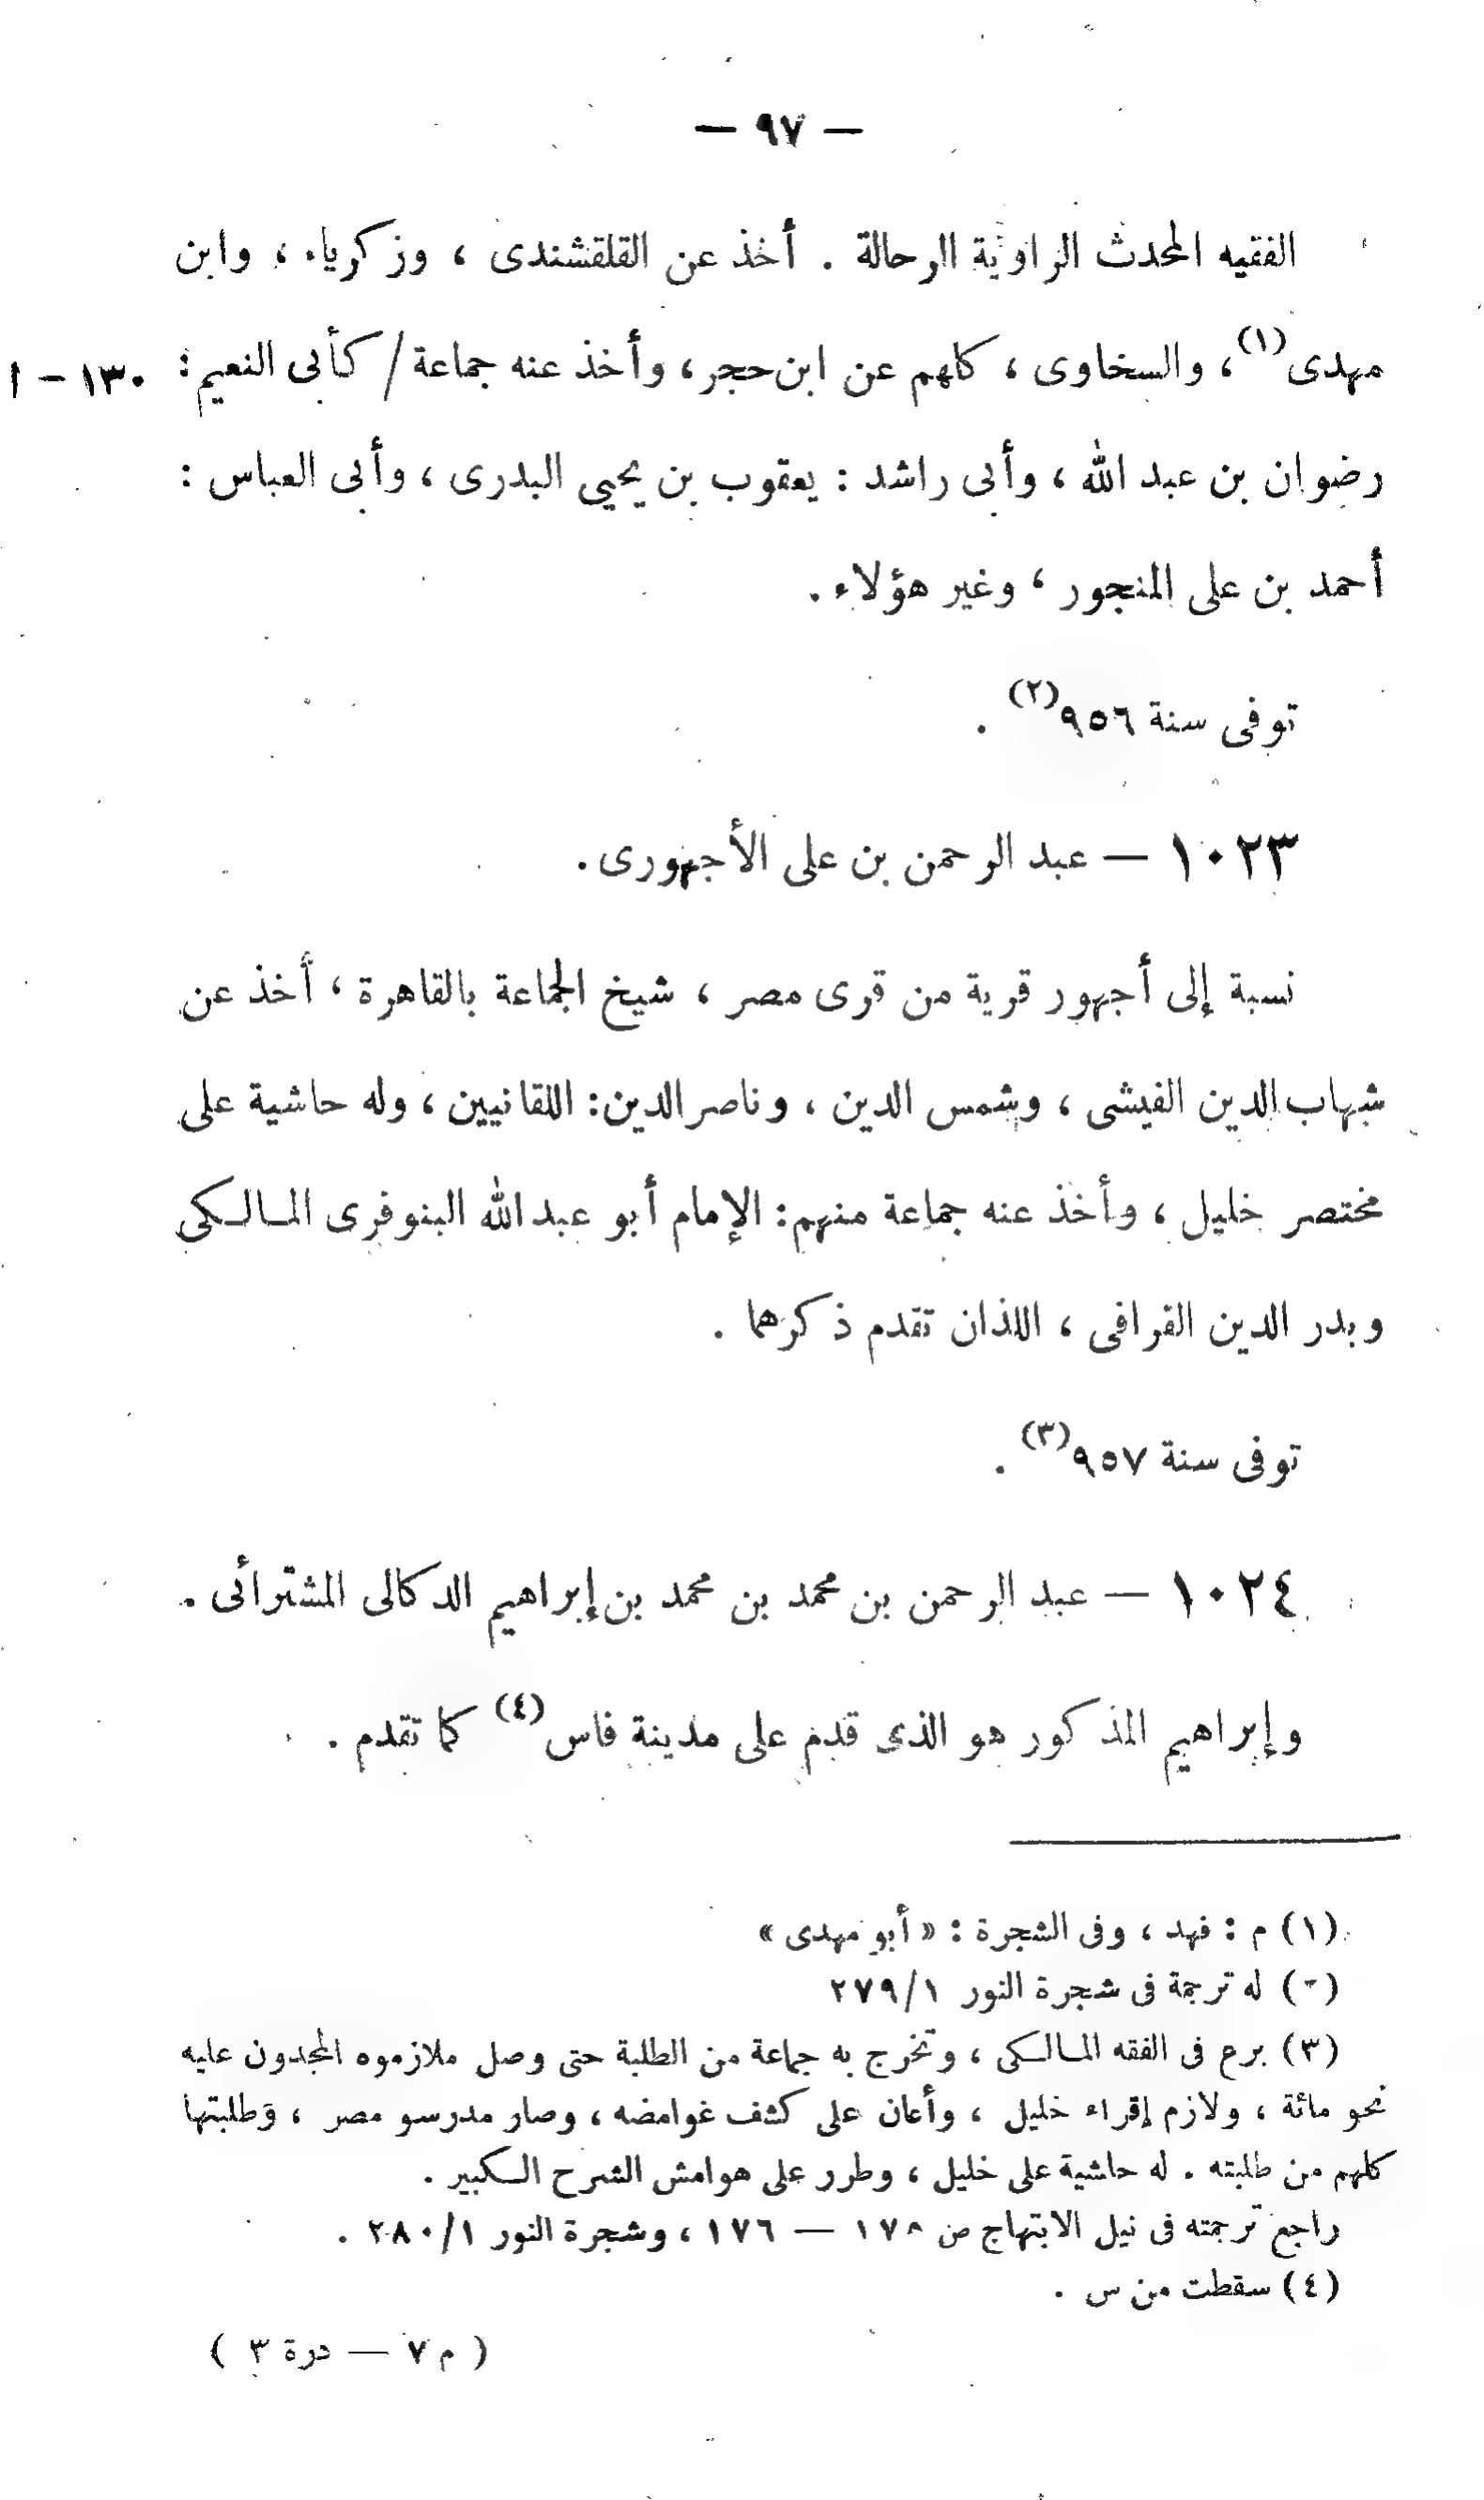 — ٩٧ —
الفقيه المحدث الراوية الرحالة . أخذ عن القلقشندى ، وزكرياء ، وابن
مهدى(١) ، والسخاوى ، كلهم عن ابن حجر ، وأخذ عنه جماعة / كأبى النعيم : ١٣٠ - ا
رضوان بن عبد الله ، وأبى راشد : يعقوب بن يحيى البدرى ، وأبى العباس :
أحمد بن على المنجور ، وغير هؤلاء .
توفى سنة ٩٥٦(٢) .
١٠٢٣ — عبد الرحمن بن على الأجهورى .
نسبة إلى أجهور قرية من قرى مصر ، شيخ الجماعة بالقاهرة ، أخذ عن
شهاب الدين الفيشى ، وشمس الدين ، وناصر الدين : اللقانيين ، وله حاشية على
مختصر خليل ، وأخذ عنه جماعة منهم : الإمام أبو عبد الله البنوفرى المالكى
وبدر الدين القرافى ، اللذان تقدم ذكرهما .
توفى سنة ٩٥٧(٣) .
١٠٢٤ — عبد الرحمن بن محمد بن محمد بن إبراهيم الدكالى المشترائى .
وإبراهيم المذكور هو الذى قدم على مدينة فاس(٤) كما تقدم .
(١) م : فهد ، وفى الشجرة : « أبو مهدى »
(٢) له ترجمة فى شجرة النور ٢٧٩/١
(٣) برع فى الفقه المالكى ، وتخرج به جماعة من الطلبة حتى وصل ملازموه المجدون عليه
نحو مائة ، ولازم إقراء خليل ، وأعان على كشف غوامضه ، وصار مدرسو مصر ، وطلبتها
كلهم من طلبته . له حاشية على خليل ، وطرر على هوامش الشرح الكبير .
راجع ترجمته فى نيل الابتهاج ص — ١٧٦ ، وشجرة النور ٢٨٠/١ .
(٤) سقطت من س .
( م ٧ — درة ٣ )